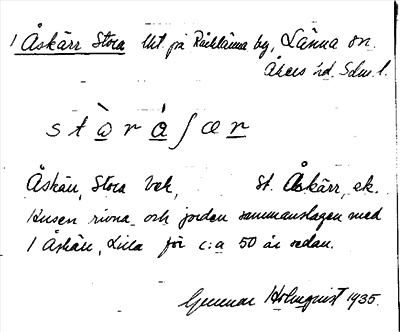 1 Åskärr Stora Utg. på Räcklänna by, Länna sn.
Åkers hd. Sdm. l.
st ò̱ r á̱ ʃ æ ṟ
Åskärr, Stora bek. St. Åskärr, ek.
Husen rivna och jorden sammanslagen med
1 Åskärr, Lilla för c:a 50 år sedan.
Gunnar Holmquist 1935.